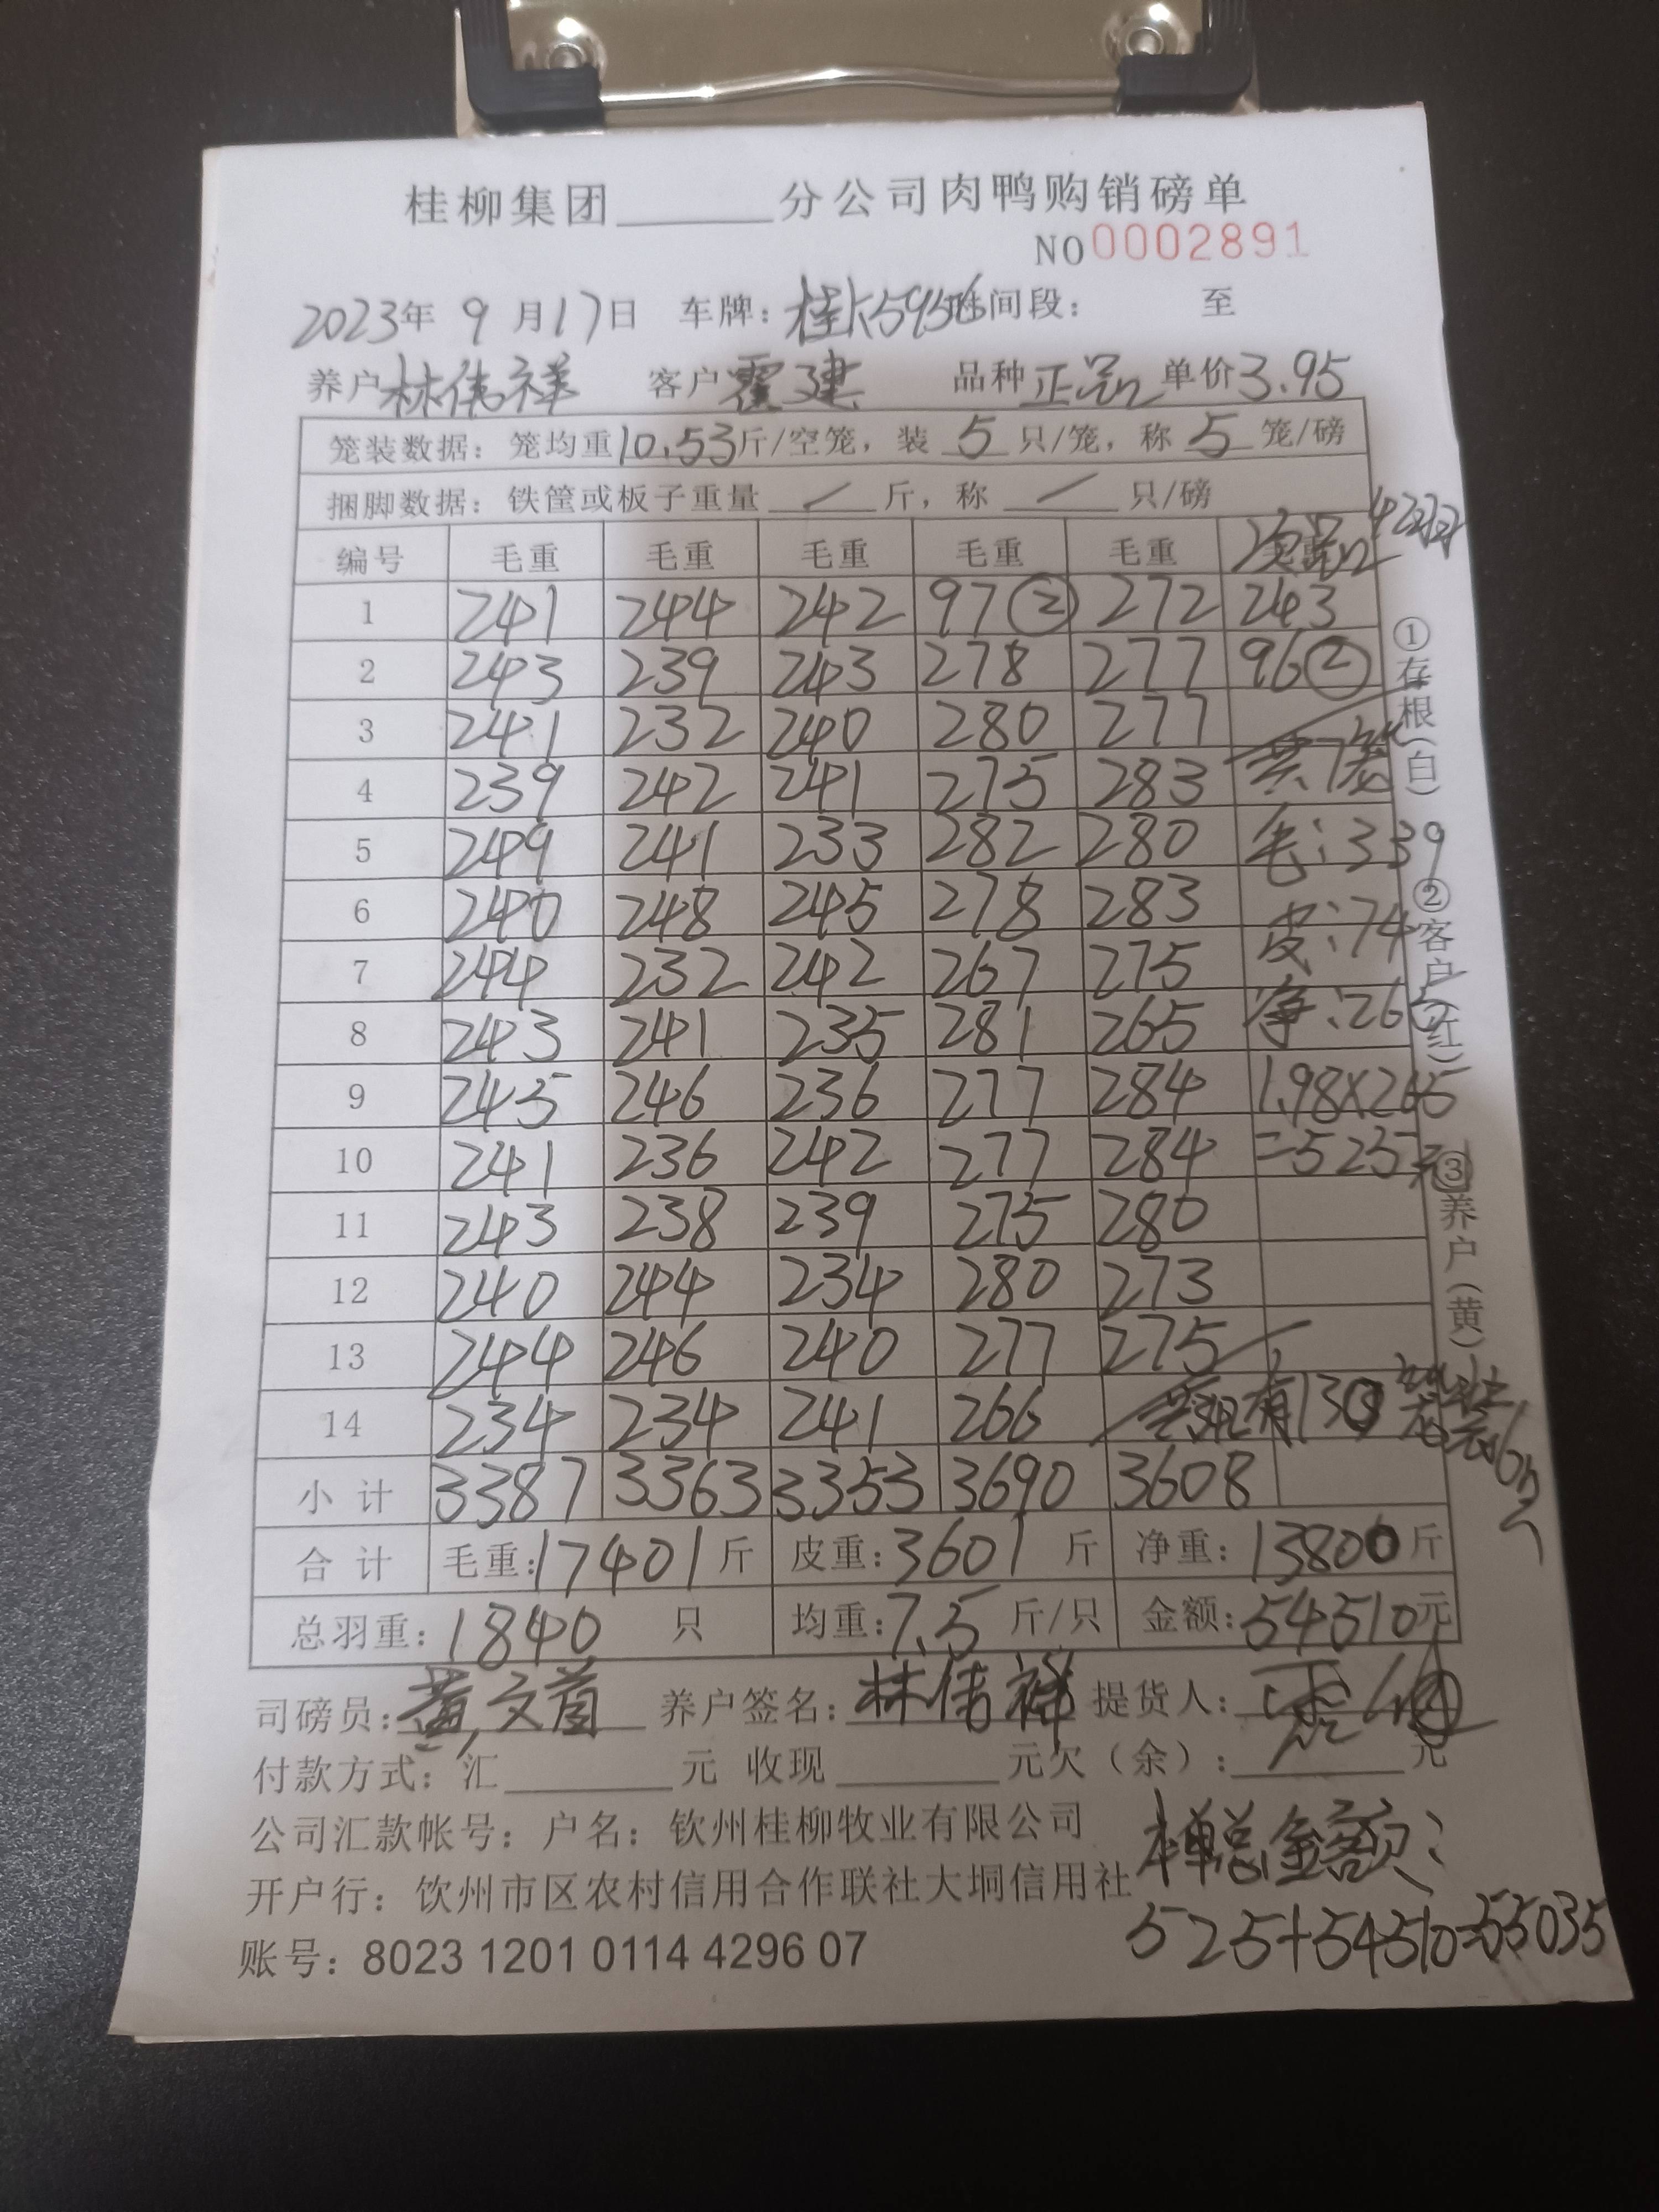 桂柳集团______分公司肉鸭购销磅单
NO 0002891
2023年 9 月17日 车牌: 时间段: 至
养户 林伟祥 客户 霍建 品种 正品 单价 3.95
笼装数据: 笼均重10.53斤/空笼, 装 5 只/笼, 称 5 笼/磅
捆脚数据: 铁筐或板子重量 / 斤, 称 / 只/磅
编号 毛重 毛重 毛重 毛重 毛重 次品
1 241 244 242 97② 272 243
2 243 239 243 278 277 96②
3 241 232 240 280 277
4 239 242 241 275 283 共7笼
5 249 241 233 282 280 毛:339
6 240 248 245 278 283 皮:74
7 244 232 242 267 275 净:265
8 243 241 235 281 265
9 245 246 236 277 284 1.98×265
10 241 236 242 277 284 =525元
11 243 238 239 275 280
12 240 244 234 280 273
13 244 246 240 277 275
14 234 234 241 266
小计 3387 3363 3353 3690 3608
合计 毛重:17401斤 皮重:3601斤 净重:13800斤
总羽重:1840 只 均重:7.5 斤/只 金额:54510元
司磅员: 养户签名:林伟祥 提货人:
付款方式: 汇______元 收现______元欠(余):______元
公司汇款帐号: 户名: 钦州桂柳牧业有限公司
开户行: 钦州市区农村信用合作联社大垌信用社
账号: 8023 1201 0114 4296 07
本单总金额:
525+54510=55035
①存根(白) ②客户(红) ③养户(黄)